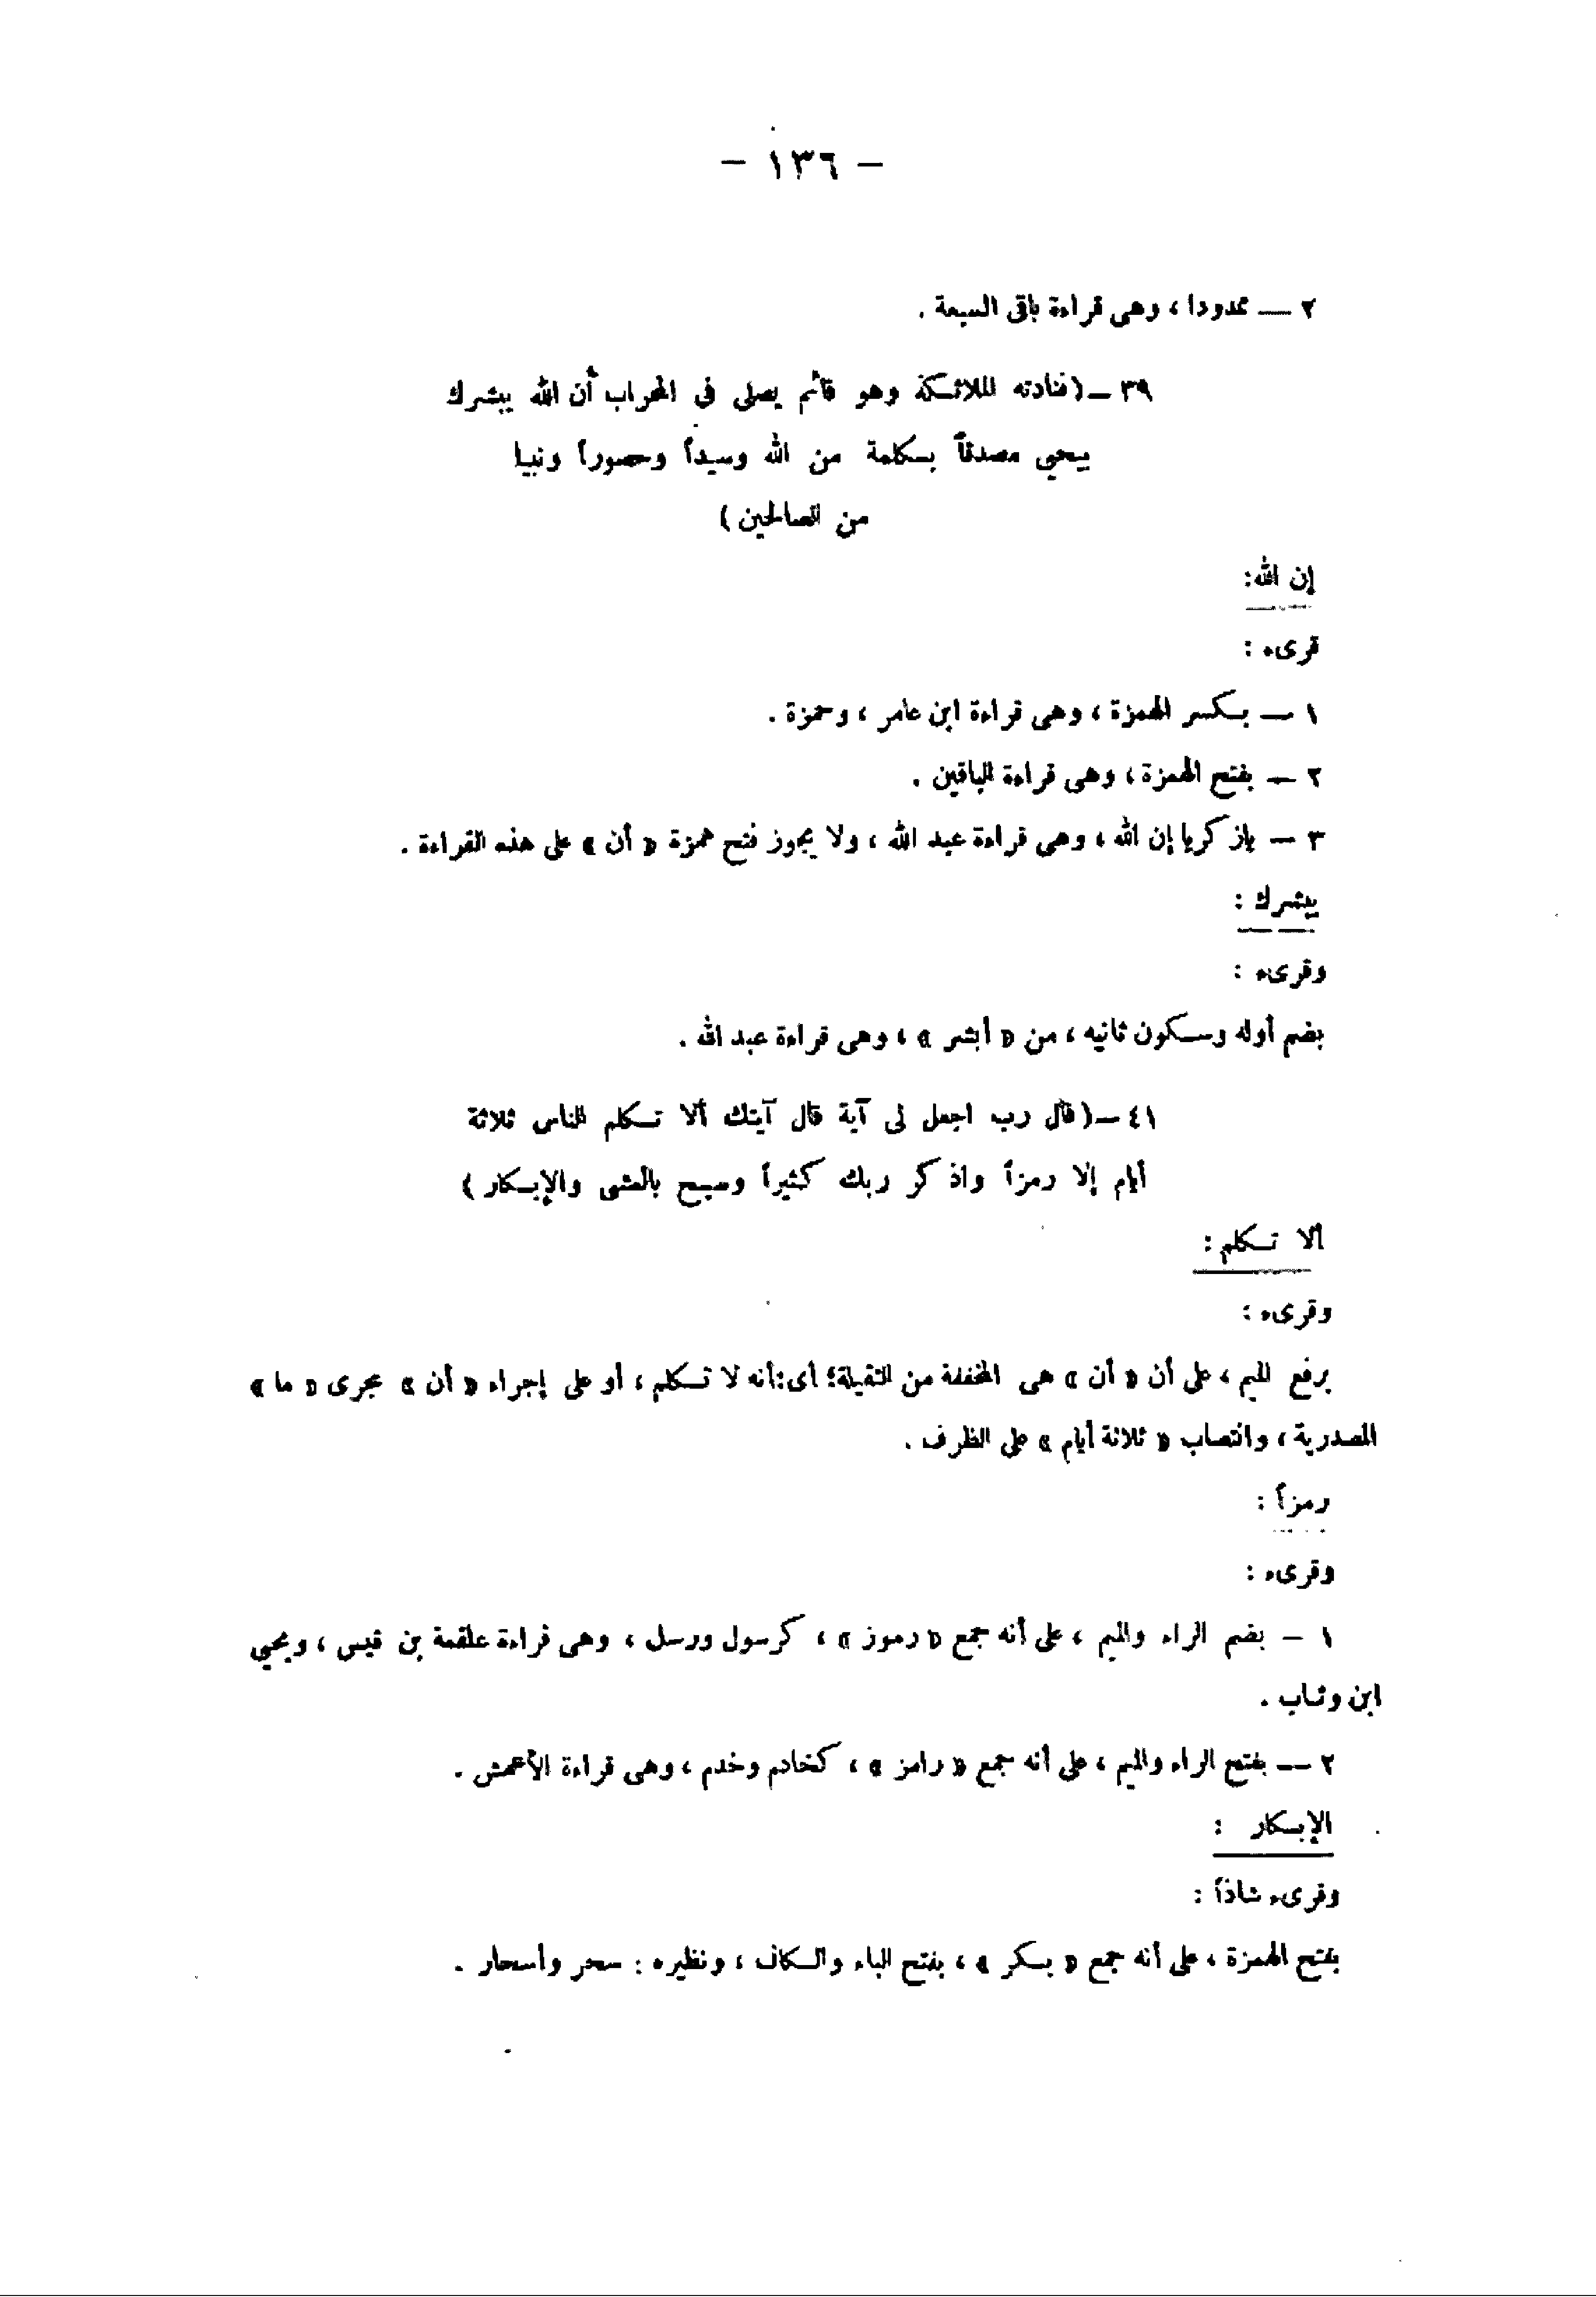 - ١٣٦ -
٢ — ممدودا ، وهى قراءة باقى السبعة .
٣٩ — (فنادته الملائكة وهو قائم يصلى فى المحراب أن الله يبشرك
بيحيى مصدقاً بكلمة من الله وسيداً وحصوراً ونبيا
من الصالحين )
إن الله:
قرىء :
١ — بكسر الهمزة ، وهى قراءة ابن عامر ، وحمزة .
٢ — بفتح الهمزة ، وهى قراءة الباقين .
٣ — يازكريا إن الله ، وهى قراءة عبد الله ، ولا يجوز فتح همزة « أن » على هذه القراءة .
يبشرك :
وقرىء :
بضم أوله وسكون ثانيه ، من « أبشر » ، وهى قراءة عبد الله .
٤١ — (قال رب اجعل لى آية قال آيتك ألا تكلم الناس ثلاثة
أيام إلا رمزاً واذكر ربك كثيراً وسبح بالعشى والإبكار )
ألا تكلم :
وقرىء :
برفع الميم ، على أن « أن » هى المخففة من الثقيلة؛ أى:أنه لا تكلم ، أو على إجراء « أن » مجرى « ما »
المصدرية ، وانتصاب « ثلاثة أيام » على الظرف .
رمزاً :
وقرىء :
١ - بضم الراء والميم ، على أنه جمع « رموز » ، كرسول ورسل ، وهى قراءة علقمة بن قيس ، ويحيى
ابن وثاب .
٢ — بفتح الراء والميم ، على أنه جمع « رامز » ، كخادم وخدم ، وهى قراءة الأعمش .
الإبكار :
وقرىء شاذاً :
بفتح الهمزة ، على أنه جمع « بكر » ، بفتح الباء والكاف ، ونظيره : سحر وأسحار .